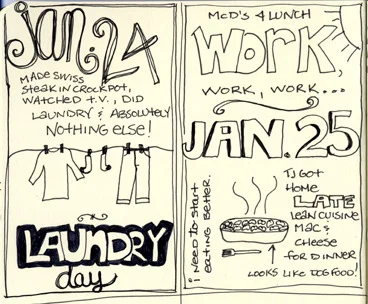 Jan. 24
MADE SWISS
STEAK IN CROCKPOT,
WATCHED T.V., DID
LAUNDRY & ABSOLUTELY
NOTHING ELSE!
LAUNDRY
day
McD's 4 LUNCH
WORK,
WORK, WORK...
JAN. 25
i NEED to start
eating better.
TJ GOT
HOME
LATE
LEAN CUISINE
MAC &
CHEESE
FOR DINNER
LOOKS LIKE DOG FOOD!